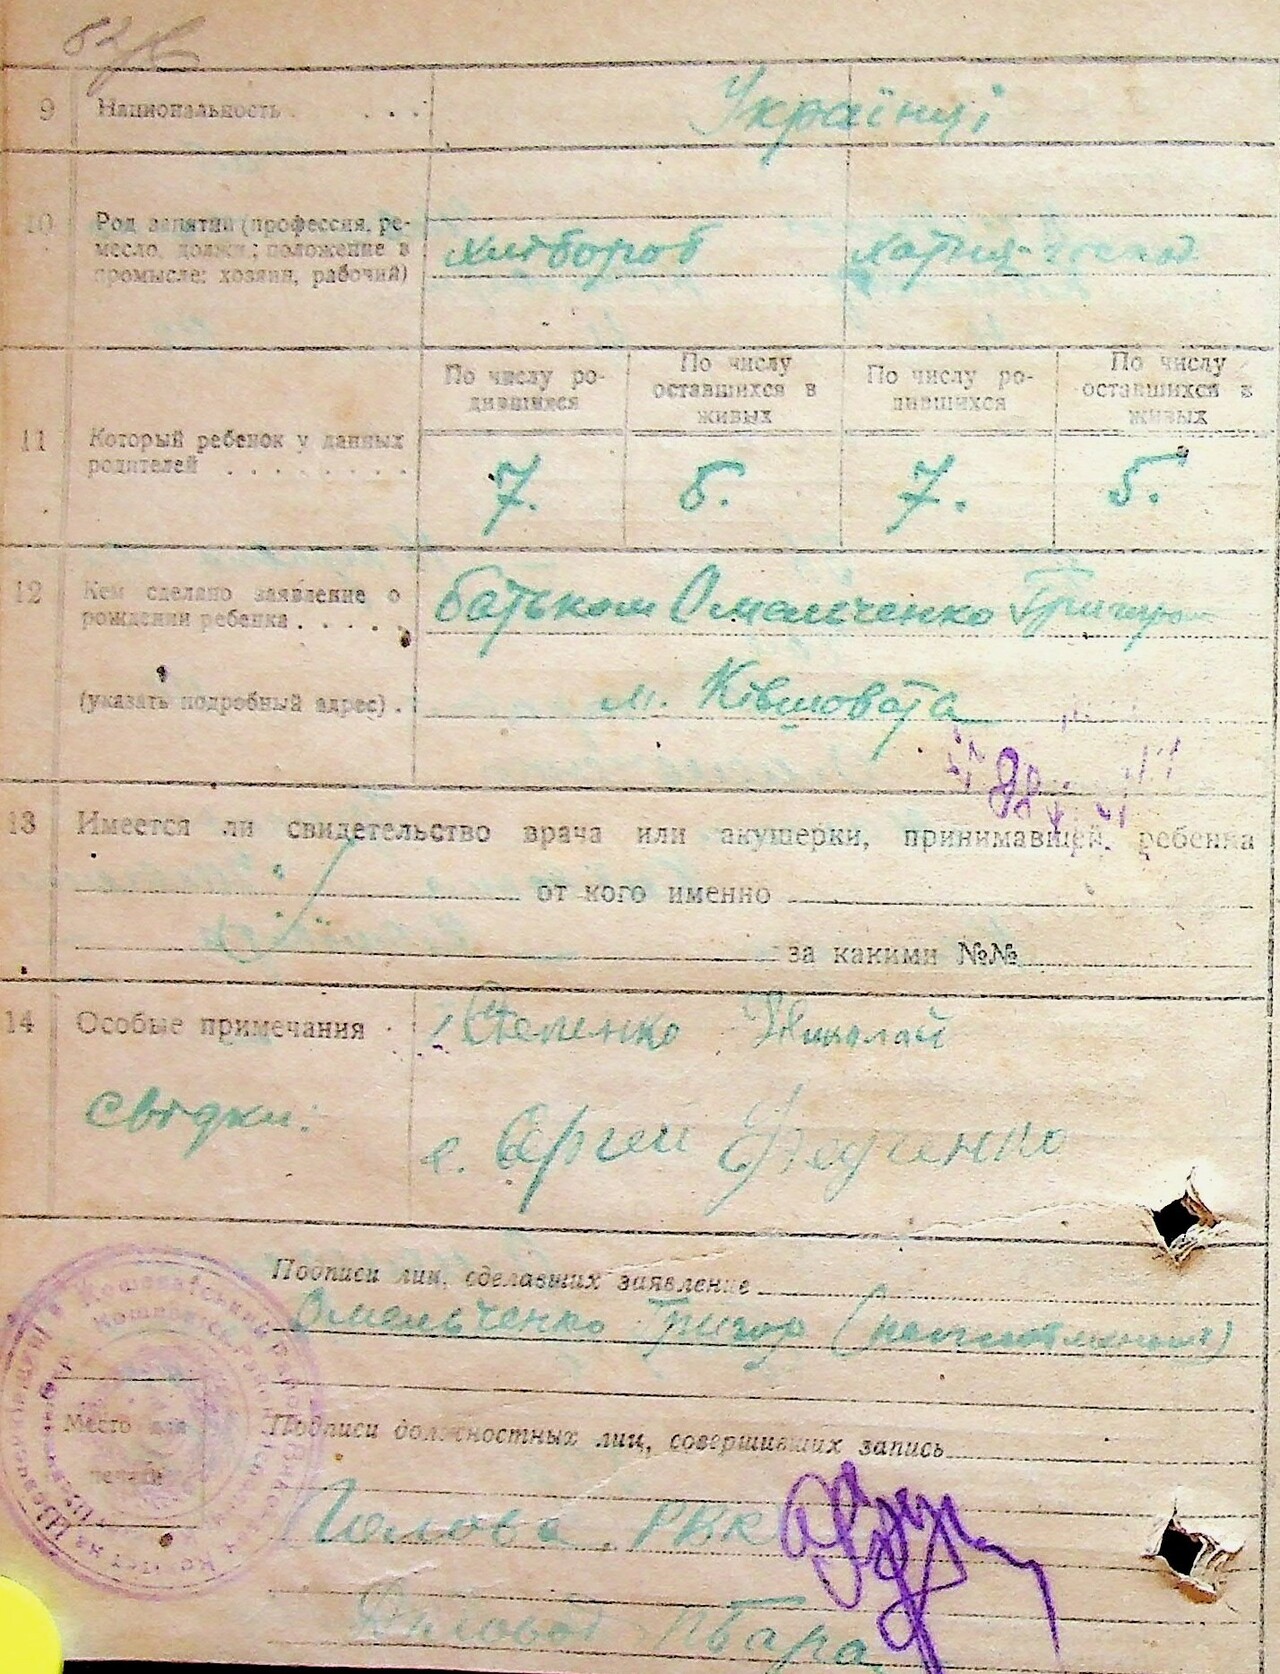 9 Национальность . . . . Українці
10 Род занятий (профессия, ре-
месло, должн.; положение в
промысле: хозяин, рабочий)
хлібороб
По числу ро-
дившихся
По числу
оставшихся в
живых
По числу ро-
дившихся
По числу
оставшихся в
живых
11 Который ребенок у данных
родителей . . . . . . . .
7. 5. 7. 5.
12 Кем сделано заявление о
рождении ребенка . . . . .
батьком Омельченко Григором
(указать подробный адрес) .
м. Ківшовата
13 Имеется ли свидетельство врача или акушерки, принимавшей ребенка
от кого именно
за какими №№
14 Особые примечания
Николай
свідки:
Сергей Федченко
Подписи лиц, сделавших заявление
Омельченко Григор
Место для
печати
Подписи должностных лиц, совершивших запись
Голова РВК
Діловод